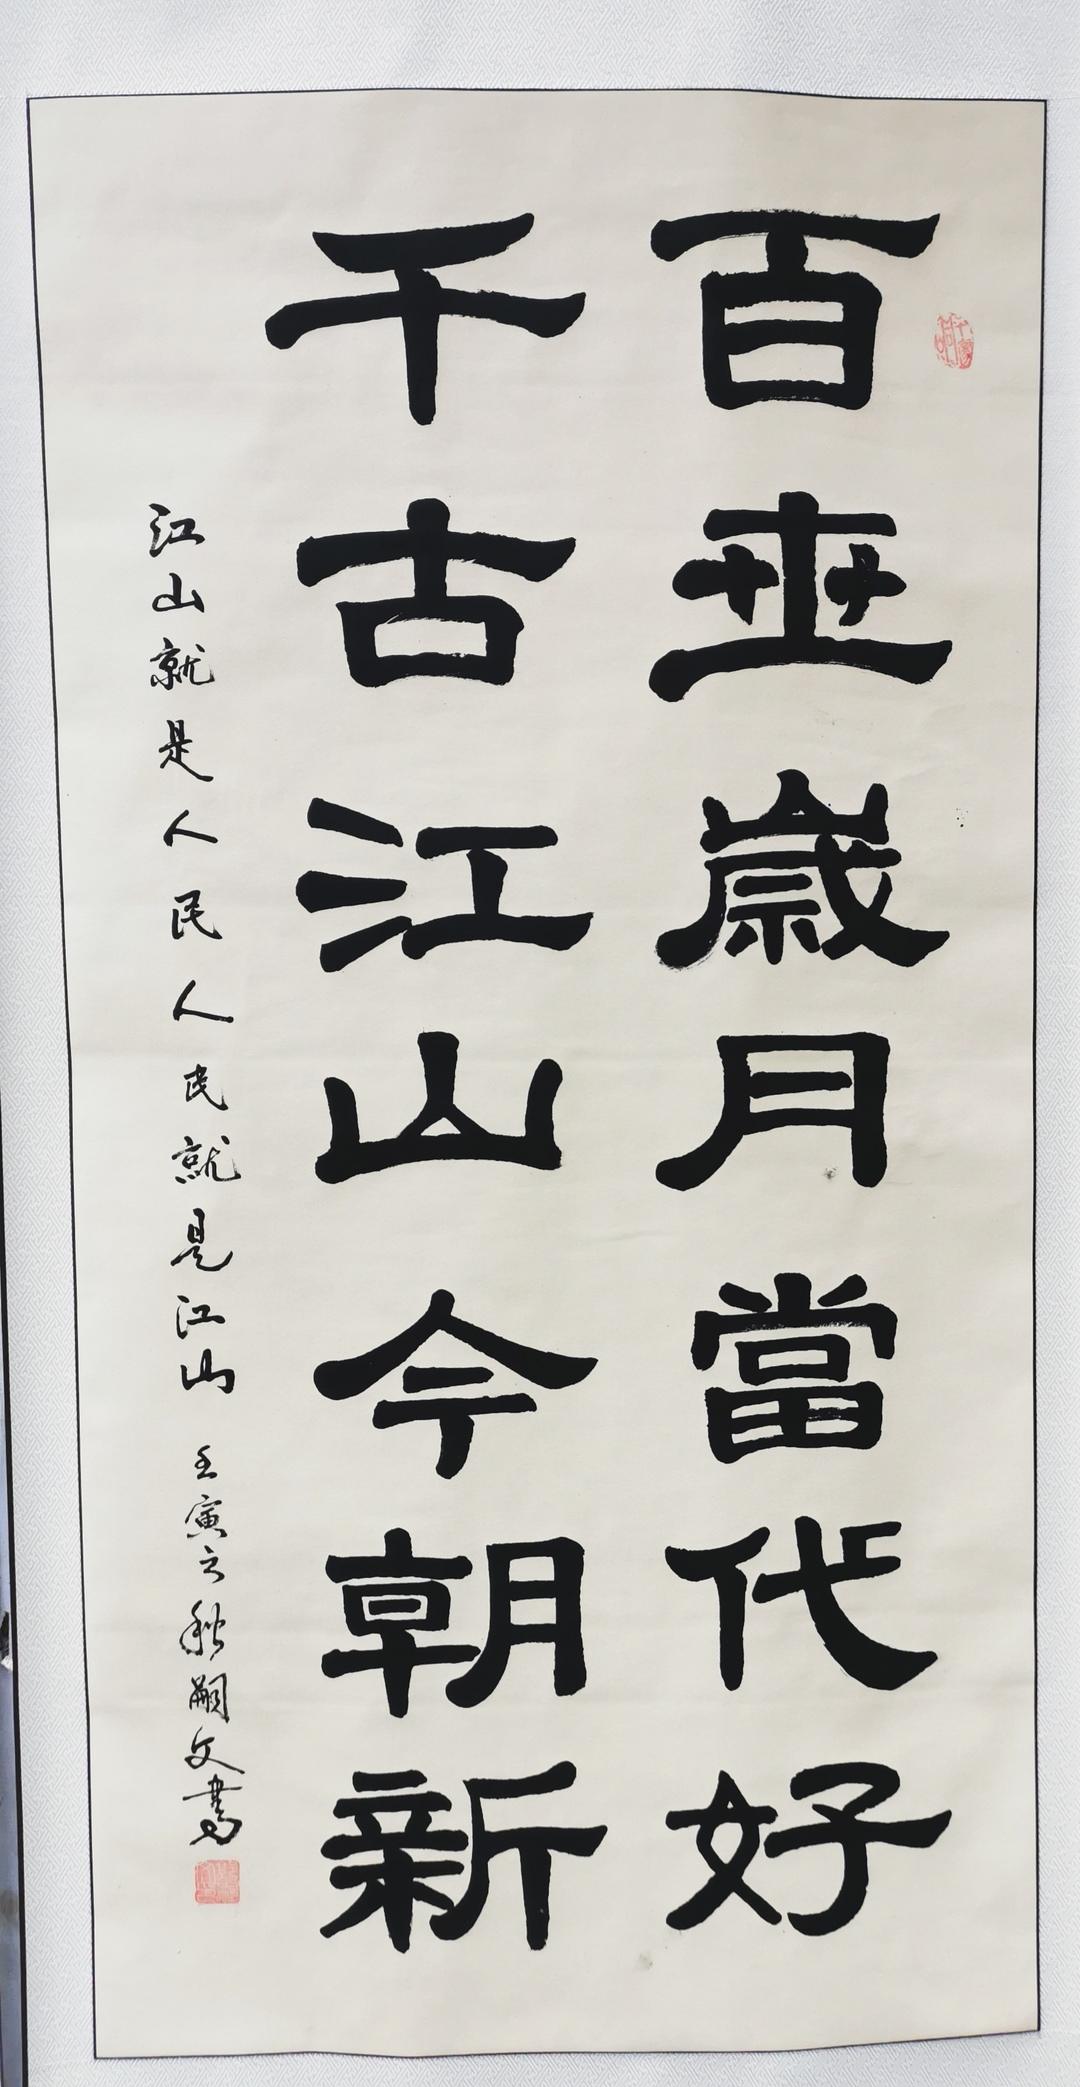 百世歲月當代好
千古江山今朝新
江山就是人民人民就是江山 壬寅之秋嗣文書